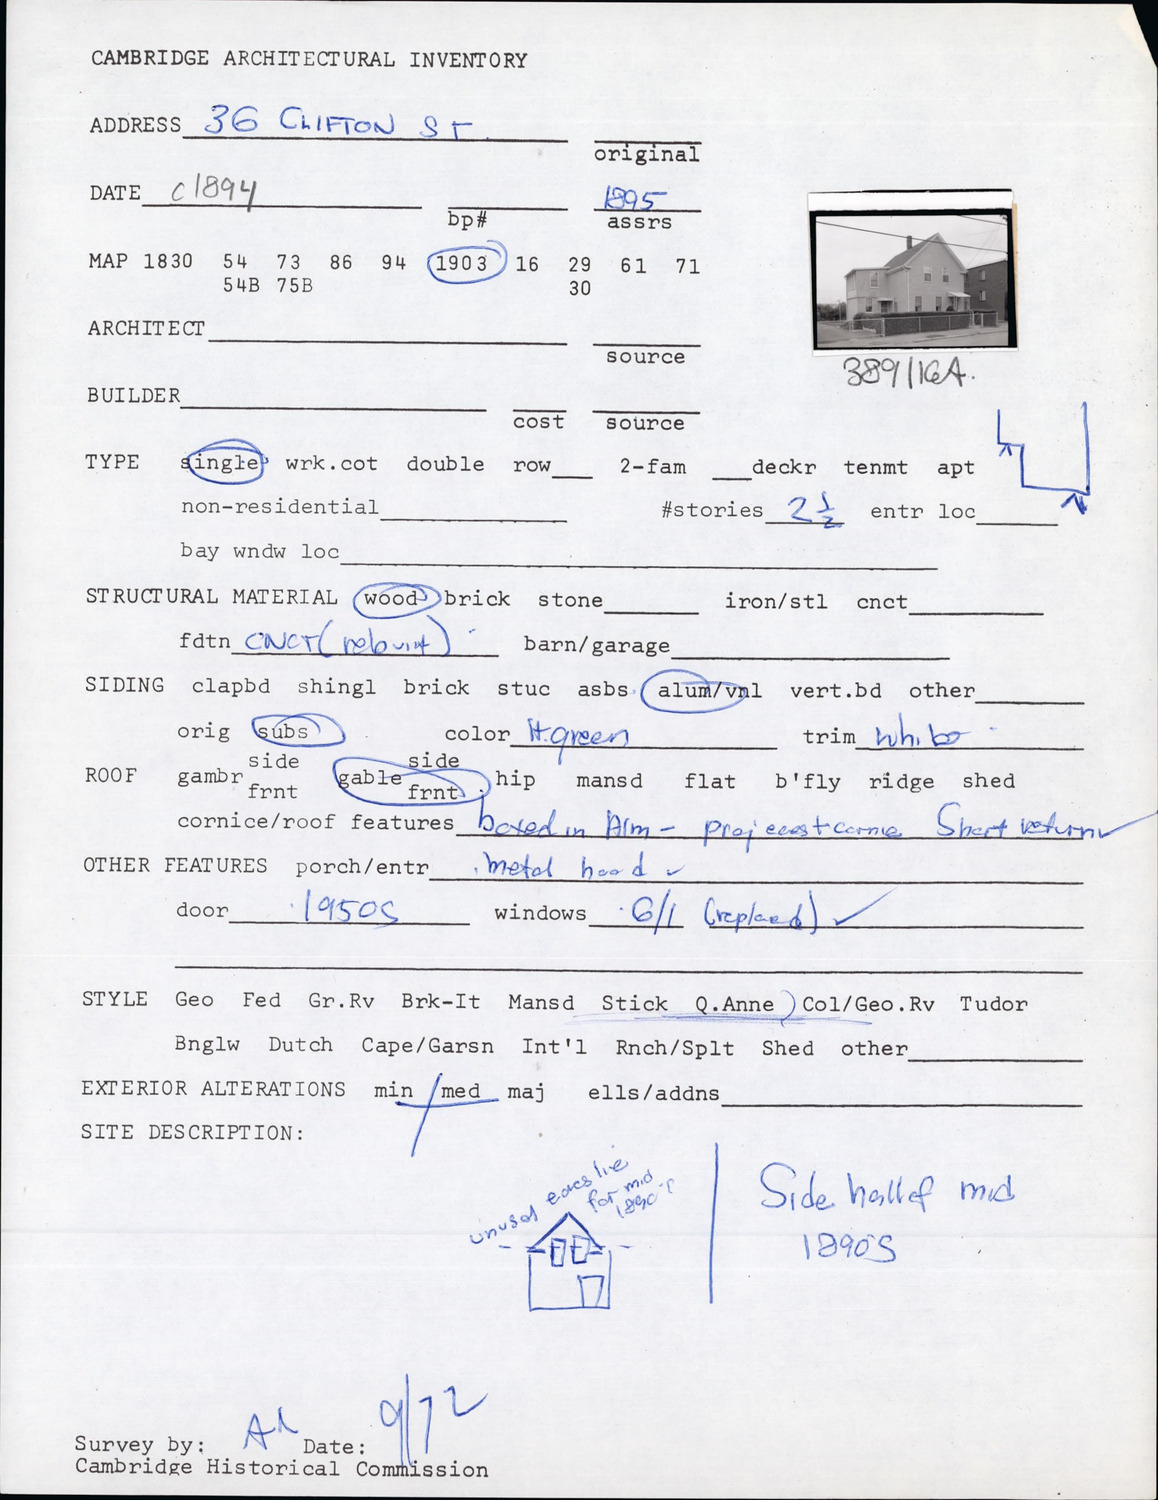 CAMBRIDGE ARCHITECTURAL INVENTORY
ADDRESS 36 CLIFTON ST
original
DATE c1894 1895
bp# assrs
MAP 1830 54 73 86 94 1903 16 29 61 71
54B 75B 30
ARCHITECT
source
389/16A.
BUILDER
cost source
TYPE single wrk.cot double row 2-fam deckr tenmt apt
non-residential #stories 2 1/2 entr loc
bay wndw loc
STRUCTURAL MATERIAL wood brick stone iron/stl cnct
fdtn CNCT (rebuilt) barn/garage
SIDING clapbd shingl brick stuc asbs alum/vnl vert.bd other
orig subs color lt. green trim white
side side
ROOF gambr gable hip mansd flat b'fly ridge shed
frnt frnt
cornice/roof features boxed in Alm - project cornice Short return
OTHER FEATURES porch/entr metal hood
door 1950S windows 6/1 (replaced)
STYLE Geo Fed Gr.Rv Brk-It Mansd Stick Q.Anne Col/Geo.Rv Tudor
Bnglw Dutch Cape/Garsn Int'l Rnch/Splt Shed other
EXTERIOR ALTERATIONS min / med maj ells/addns
SITE DESCRIPTION:
unusual eaves line
for mid
1890's
Side hall of mid
1890S
Survey by: Date: 9/72
Cambridge Historical Commission